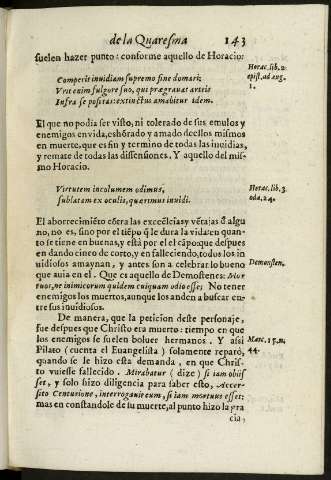 de la Quaresma 143
suelen hazer punto: conforme aquello de Horacio:
Horac. lib. 2.
epist. ad aug.
1.
Comperit inuidiam supremo fine domari:
Vrit enim fulgore suo, qui prægrauat artis
Infra se positas: extinctus amabitur idem.
El que no podia ser visto, ni tolerado de sus emulos y
enemigos en vida, es hõrado y amado dellos mismos
en muerte, que es fin y termino de todas las inuidias,
y remate de todas las dissensiones. Y aquello del mis-
mo Horacio.
Virtutem incolumem odimus,
sublatam ex oculis, quærimus inuidi.
Horac. lib. 3.
oda, 24.
El aborrecimiẽto cõtra las excelẽcias y vẽtajas d̃ algu
no, no es, sino por el tiẽpo q̃ le dura la vida: en quan-
to se tiene en buenas, y está por el el cãpo: que despues
en dando cinco de corto, y en falleciendo, todos los in
uidiosos amaynan, y antes son a celebrar lo bueno
que auia en el. Que es aquello de Demostenes: Mor
tuos, ne inimicorum quidem cuiquam odio esse: No tener
enemigos los muertos, aunque los anden a buscar en-
tre sus inuidiosos.
Demosten.
De manera, que la peticion deste personaje,
fue despues que Christo era muerto: tiempo en que
los enemigos se suelen boluer hermanos. Y assi
Pilato (cuenta el Euangelista) solamente reparó,
quando se le hizo esta demanda, en que Chris-
to vuiesse fallecido. Mirabatur (dize) si iam obiis
set, y solo hizo diligencia para saber esto, Accer-
sito Centurione, interrogauit eum, si iam mortuus esset:
mas en constandole de su muerte, al punto hizo la gra
Marc. 15. n.
44.
cia,